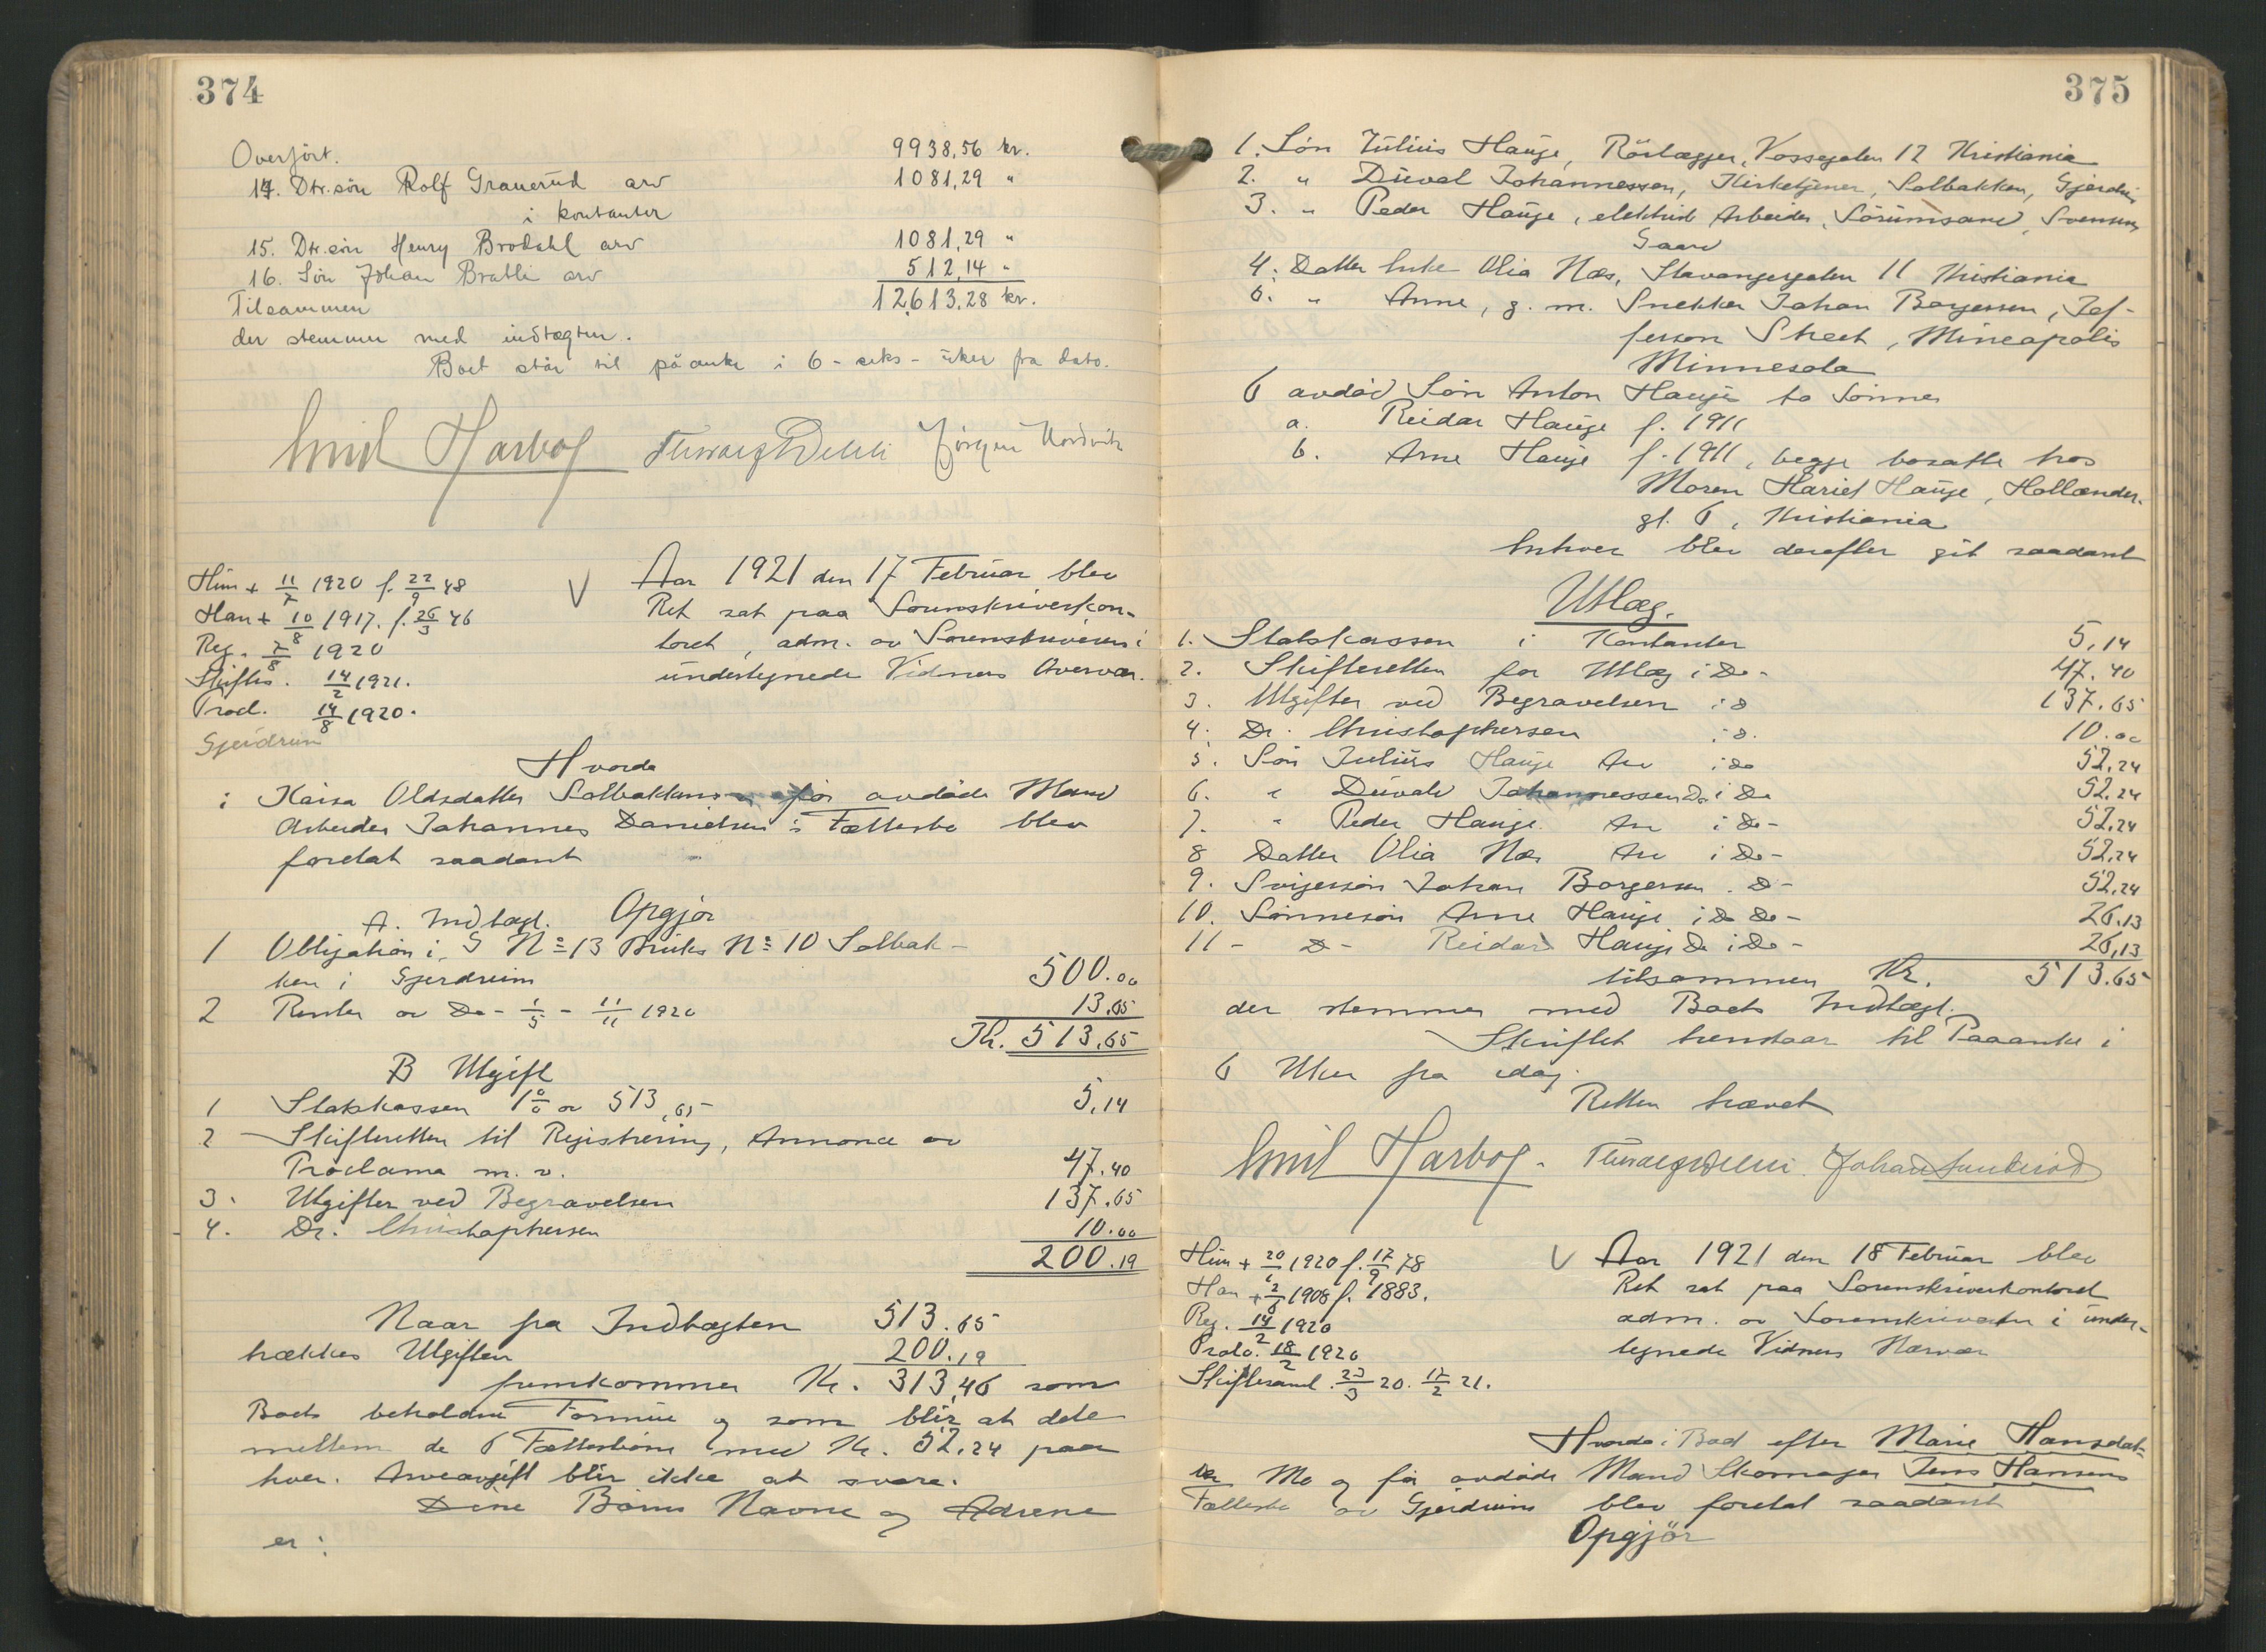 374
Overført. 9938,56 kr.
14. Dtr.søn Rolf Grauerud arv 1081,29 "
i kontanter
15. Dtr.søn Henry Brodahl arv 1081,29 "
16. Søn Johan Bratli arv 512,14 "
Tilsammen 12,613,28 kr.
der stemmer med indtægten.
Boet står til påanke i 6 - seks - uker fra dato.
Emil Harbog Jörgen
Hun + 11/7 1920 f. 22/9 48
Han + 10/8 1917. f. 26/3 46
Reg. 7/8 1920
Skiftes. 14/2 1921.
Procl. 14/8 1920.
Gjerdrum
V Aar 1921 den 17 Februar blev
Ret sat paa Sorenskriverkon-
toret, adm. av Sorenskriveren i
undertegnede Vidners Overvær.
Hvorda
i Kaisa Oldsdatter Solbakkens og før avdøde Mand
Arbeider Johannes Danielsens Fællesbo blev
foretat saadant
Opgjør
A. Indtægt.
1 Obligation i G No 13 Bruks No 10 Solbak-
ken i Gjerdrum 500.00
2 Renter av Do - 1/5 - 11/11 1920 13.65
Kr. 513,65
B Utgift
1 Statskassen 1% av 513,65 5,14
2 Skifteretten til Registrering, Annonce av
Proclama m. v. 47.40
3. Utgifter ved Begravelsen 137.65
4. Dr. Christophersen 10.00
200.19
Naar fra Indtægten 513.65
trækkes Utgiften 200.19
fremkommer Kr. 313,46 som
Boets beholdne Formue og som blir at dele
mellem de 6 Fællesbørn med Kr. 52.24 paa
hver. Arveavgift blir ikke at svare.
Disse Børns Navne og Adresse
er:
375
1. Søn Julius Hauge, Rörlægger, Vossegaten 12 Kristiania
2. " Düval Johannessen, Kirketjener, Solbakken, Gjerdrum
3. " Peder Hauge, elektrisk Arbeider, Sörumsand, Svensens
Gaard
4. Datter Enke Olia Næs, Stavangergaten 11 Kristiania
5. " Anne, g. m. Snekker Johan Borgersen, Jef-
ferson Street, Mineapolis
Minnesota
6 avdöd Sön Anton Hauge to Sönner
a. Reidar Hauge f. 1911
b. Arne Hauge f. 1911, begge bosatte hos
Moren Hariet Hauge, Hollænder-
gt. 6, Kristiania
Enhver blev derefter git saadant
Utlæg.
1. Statskassen i Kontanter 5,14
2. Skifteretten for Utlæg i Do - 47.40
3. Utgifter ved Begravelsen i d 137.65
4. Dr. Christophersen i d. 10.00
5. Søn Julius Hauge Arv i do 52,24
6. " Düvald Johannessen Do i Do 52,24
7. " Peder Hauge Arv i Do - 52,24
8 Datter Olia Næs Arv i Do - 52,24
9. Svigersön Johan Borgersen. D - 52,24
10. Sönnesön Arne Hauge i D Do - 26,13
11 - D - Reidar Hauge Do i Do - 26,13
tilsammen Kr. 513.65
der stemmer med Boets Indtægt.
Skiftet henstaar til Paaanke i
6 Uker fra idag.
Retten hævet
Emil Harbog.
Hun + 20/1 1920 f. 17/9 78
Han + 2/6 1908 f. 1883.
Reg. 14/2 1920
Procl. 18/2 1920
Skiftesaml. 23/3 20. 17/2 21.
V Aar 1921 den 18 Februar blev
Ret sat paa Sorenskriverkontoret
adm. av Sorenskriveren i under-
tegnede Vidners Nærvær
Hvorda i Boet efter Marie Hansdat-
ter Mo og før avdøde Mand Skomager Jens Hansens
Fællesbo av Gjerdrum blev foretat saadant
Opgjör